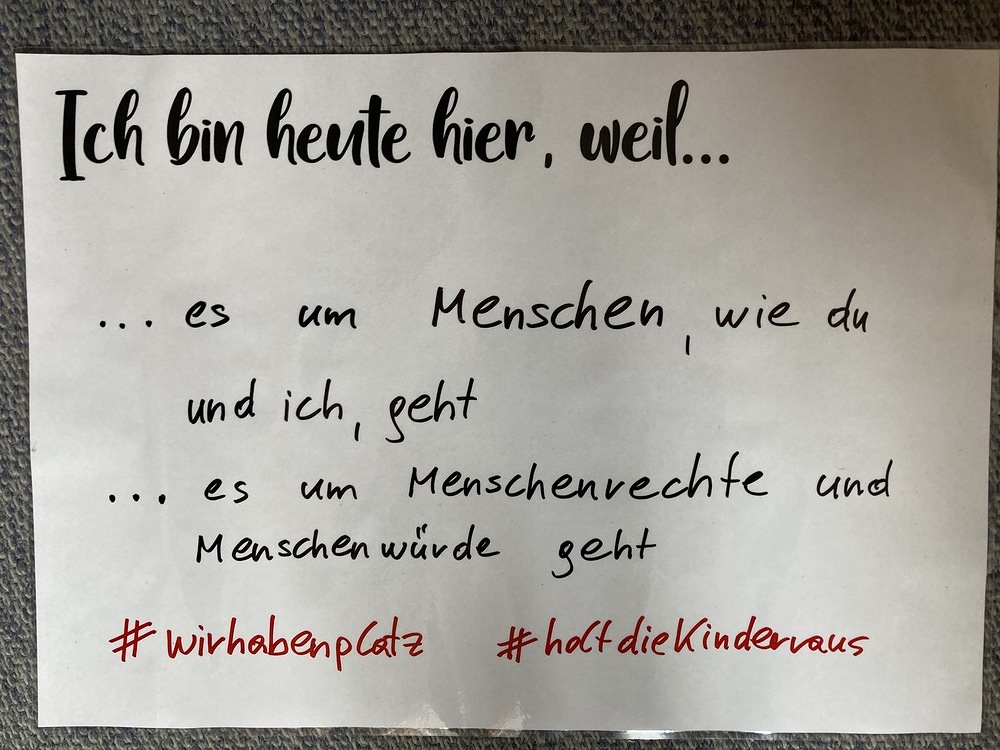 Ich bin heute hier, weil...
... es um Menschen, wie du
und ich, geht
... es um Menschenrechte und
Menschenwürde geht
#wirhabenplatz #holtdieKinderraus